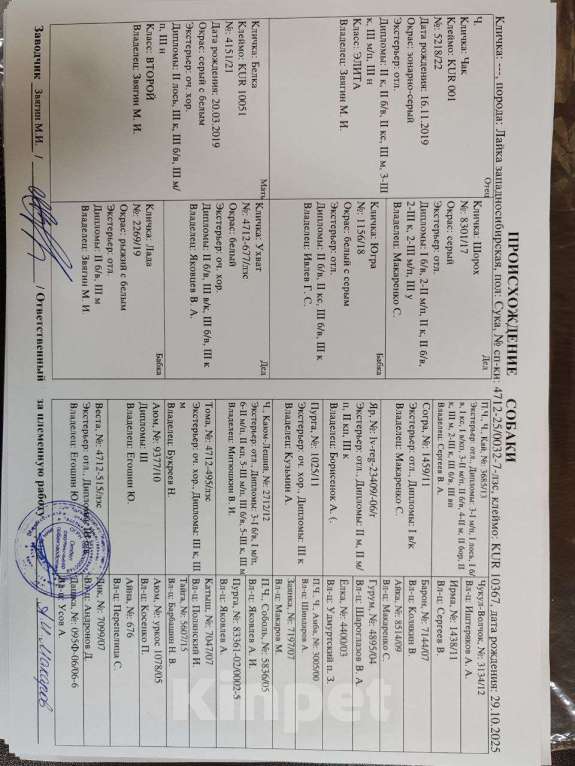 ПРОИСХОЖДЕНИЕ СОБАКИ
Кличка: ---, порода: Лайка западносибирская, пол: Сука, № сп-ки: 4712-25/0032-7-лзс, клеймо: KUR 10367, дата рождения: 29.10.2025
Отец
Ч.
Кличка: Чак
Клеймо: KUR 001
№: 5218/22
Дата рождения: 16.11.2019
Окрас: зонарно-серый
Экстерьер: отл.
Дипломы: II к, II б/в, II кс, III м, 3-III
к, III м/п, III н
Класс: ЭЛИТА
Владелец: Звягин М. И.
Мать
Кличка: Белка
Клеймо: KUR 10051
№: 4151/21
Дата рождения: 20.03.2019
Окрас: серый с белым
Экстерьер: оч. хор.
Дипломы: II лось, III к, III б/в, III м/
п, III н
Класс: ВТОРОЙ
Владелец: Звягин М. И.
Дед
Кличка: Шорох
№: 8301/17
Окрас: серый
Экстерьер: отл.
Дипломы: I б/в, 2-II м/п, II к, II б/в,
2-III к, 2-III м/п, III у
Владелец: Макаренко С.
Бабка
Кличка: Югра
№: 1156/18
Окрас: белый с серым
Экстерьер: отл.
Дипломы: II б/в, II кс, III б/в, III к
Владелец: Ивлев Г. С.
Дед
Кличка: Ухват
№: 4712-677/лзс
Окрас: белый
Экстерьер: оч. хор.
Дипломы: II б/в, III в/к, III б/в, III к
Владелец: Яковцев В. А.
Бабка
Кличка: Лада
№: 2269/19
Окрас: рыжий с белым
Экстерьер: отл.
Дипломы: II б/в, III м
Владелец: Звягин М. И.
П.Ч., Ч. Кай, №: 3685/13
Владелец: Сергеев В. А.
Согра, №: 1459/11
Экстерьер: отл., Дипломы: I в/к
Владелец: Макаренко С.
Яр, №: lv-reg-23409/-06/г
Экстерьер: отл., Дипломы: II м, II м/
п, II кп, III к
Владелец: Борисенок А. (.
Пурга, №: 1025/11
Экстерьер: оч. хор., Дипломы: III к
Владелец: Кузьмин А.
Ч. Каюм-Леший, №: 2712/12
Экстерьер: отл., Дипломы: 3-I б/в, I м/п,
6-II м/п, II кп, 5-II м/п, III б/в, 5-III к, III м
Владелец: Митюшкин В. И.
Тома, №: 4712-495/лзс
Экстерьер: оч. хор., Дипломы: III к, III
м
Владелец: Букреев Н.
Аюм, №: 9377/10
Дипломы: III
Владелец: Егошин Ю.
Веста, №: 4712-515/лзс
Экстерьер: отл., Дипломы: III б/в
Владелец: Егошин Ю.
Чукул-Волчок, №: 3134/12
Вл-ц: Иштеряков А. А.
Ирма, №: 1438/11
Вл-ц: Сергеев В.
Барон, №: 7144/07
Вл-ц: Колякин В.
Айка, №: 8514/09
Вл-ц: Макаренко С.
Гурум, №: 4895/04
Вл-ц: Шароглазов В. А.
Ёлка, №: 4400/03
Вл-ц: Удмуртский п. З.
П.Ч., Ч., Амба, №: 3005/00
Вл-ц: Шинкарев А.
Заимка, №: 7197/07
Вл-ц: Макаров М.
П.Ч., Соболь, №: 5836/05
Вл-ц: Яковлев А. И.
Пурга, №: 83361-02/0002-5
Вл-ц: Яковлев А.
Катыш, №: 7047/07
Вл-ц: Полянский И.
Тайга, №: 5607/15
Вл-ц: Барбашин Н. В.
Аюм, №: уркос 1078/05
Вл-ц: Косенко П.
Айна, №: 676
Вл-ц: Перепелица С.
Дик, №: 7099/07
Вл-ц: Андронов Д.
Вл-ц: Усов А.
Заводчик Звягин М.И. / / Ответственный за племенную работу
Kinpet